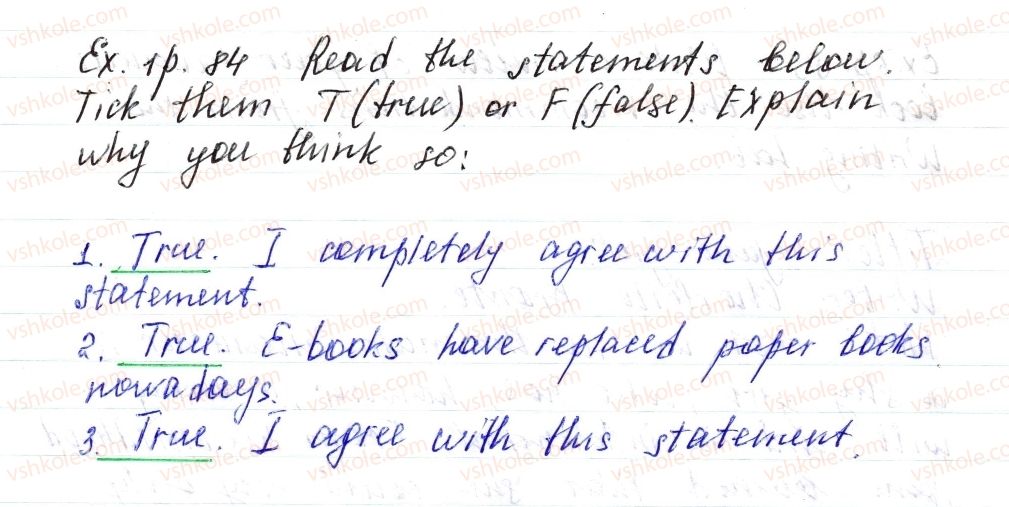 Ex. 1p. 84 Read the statements below.
Tick them T (true) or F (false). Explain
why you think so:
1. True. I completely agree with this
statement.
2. True. E-books have replaced paper books
nowadays.
3. True. I agree with this statement.